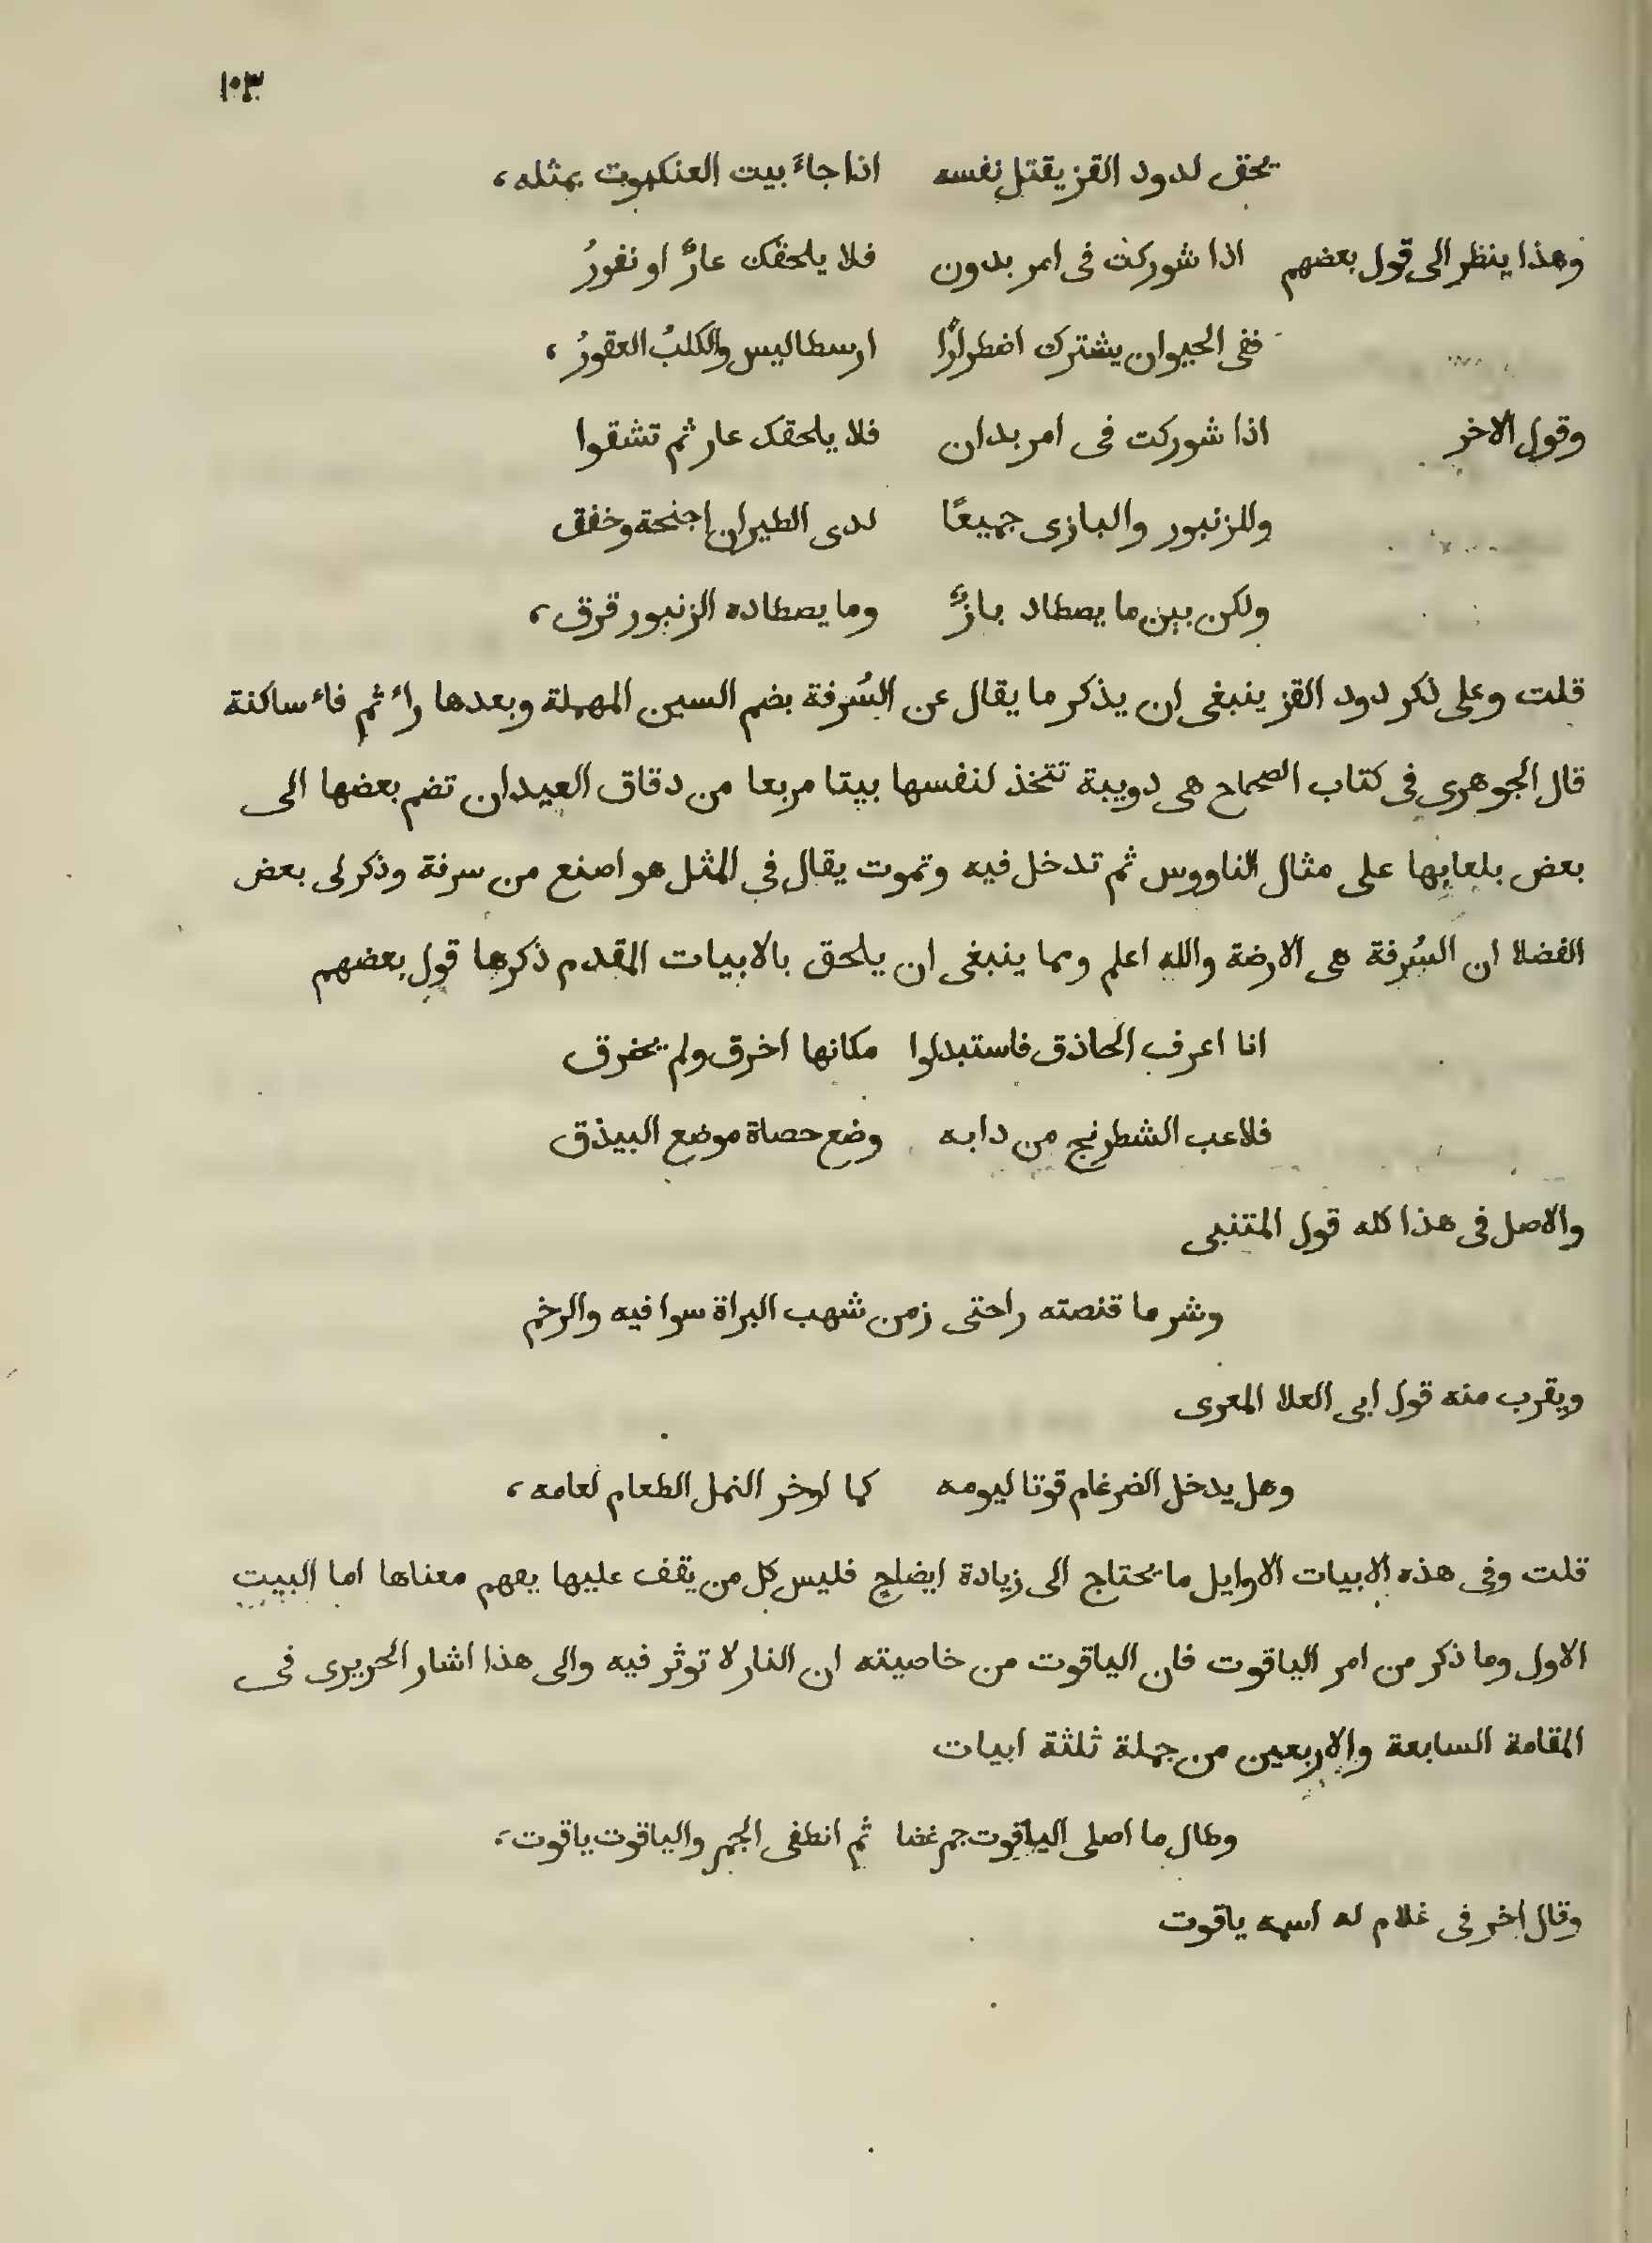 ١٠٣
يحق لدود القز يقتل نفسه اذا جاءَ بيت العنكبوت بمثله،
وهذا ينظر الى قول بعضهم اذا شوركت فى امر بدون فلا يلحقك عارٌ او نفورُ
ففى الحيوان يشترك اضطرارًا ارسطاليس والكلبُ العقورُ،
وقول الاخر اذا شوركت فى امر بدان فلا يلحقك عار ثم تشقوا
وللزنبور والبازى جميعًا لدى الطيران اجنحة وخفق
ولكن بين ما يصطاد بازٌ وما يصطاده الزنبور فرق،
قلت وعلى ذكر دود القز ينبغى ان يذكر ما يقال عن السُرفة بضم السين المهملة وبعدها راء ثم فاء ساكنة
قال الجوهرى فى كتاب الصحاح هى دويبة تتخذ لنفسها بيتا مربعا من دقاق العيدان تضم بعضها الى
بعض بلعابها على مثال الناووس ثم تدخل فيه وتموت يقال فى المثل هو اصنع من سرفة وذكر لى بعض
الفضلا ان السُرفة هى الارضة والله اعلم ومما ينبغى ان يلحق بالابيات المقدم ذكرها قول بعضهم
انا اعرف الحاذق فاستبدلوا مكانها اخرق ولم يخرق
فلاعب الشطرنج من دابه وضع حصاة موضع البيذق
والاصل فى هذا كله قول المتنبى
وشر ما قنصته راحتى زمن شهب البراة سوا فيه والرخم
ويقرب منه قول ابى العلا المعرى
وهل يدخل الضرغام قوتا ليومه كما لوخر النمل الطعام لعامه،
قلت وفى هذه الابيات الاوايل ما يحتاج الى زيادة ايضاح فليس كل من يقف عليها يفهم معناها اما البيت
الاول وما ذكر من امر الياقوت فان الياقوت من خاصيته ان النار لا توثر فيه والى هذا اشار الحريرى فى
المقامة السابعة والاربعين من جملة ثلثة ابيات
وطال ما اصلى الياقوت جمر غضا ثم انطفى الجمر والياقوت ياقوت،
وقال اخر فى غلام له اسمه ياقوت